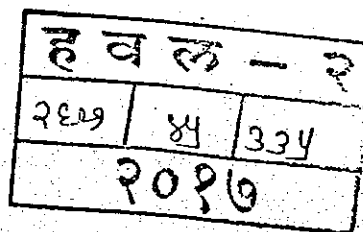 हवल - २
२६७ ४५ ३३५
२०१७